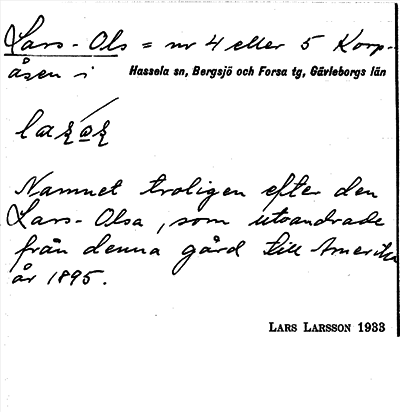 Lars-Ols = nr 4 eller 5 Korp-
åsen i Hassela sn, Bergsjö och Forsa tg, Gävleborgs län
Namnet troligen efter den
Lars-Olsa, som utvandrade
från denna gård till Amerika
år 1895.
LARS LARSSON 1933